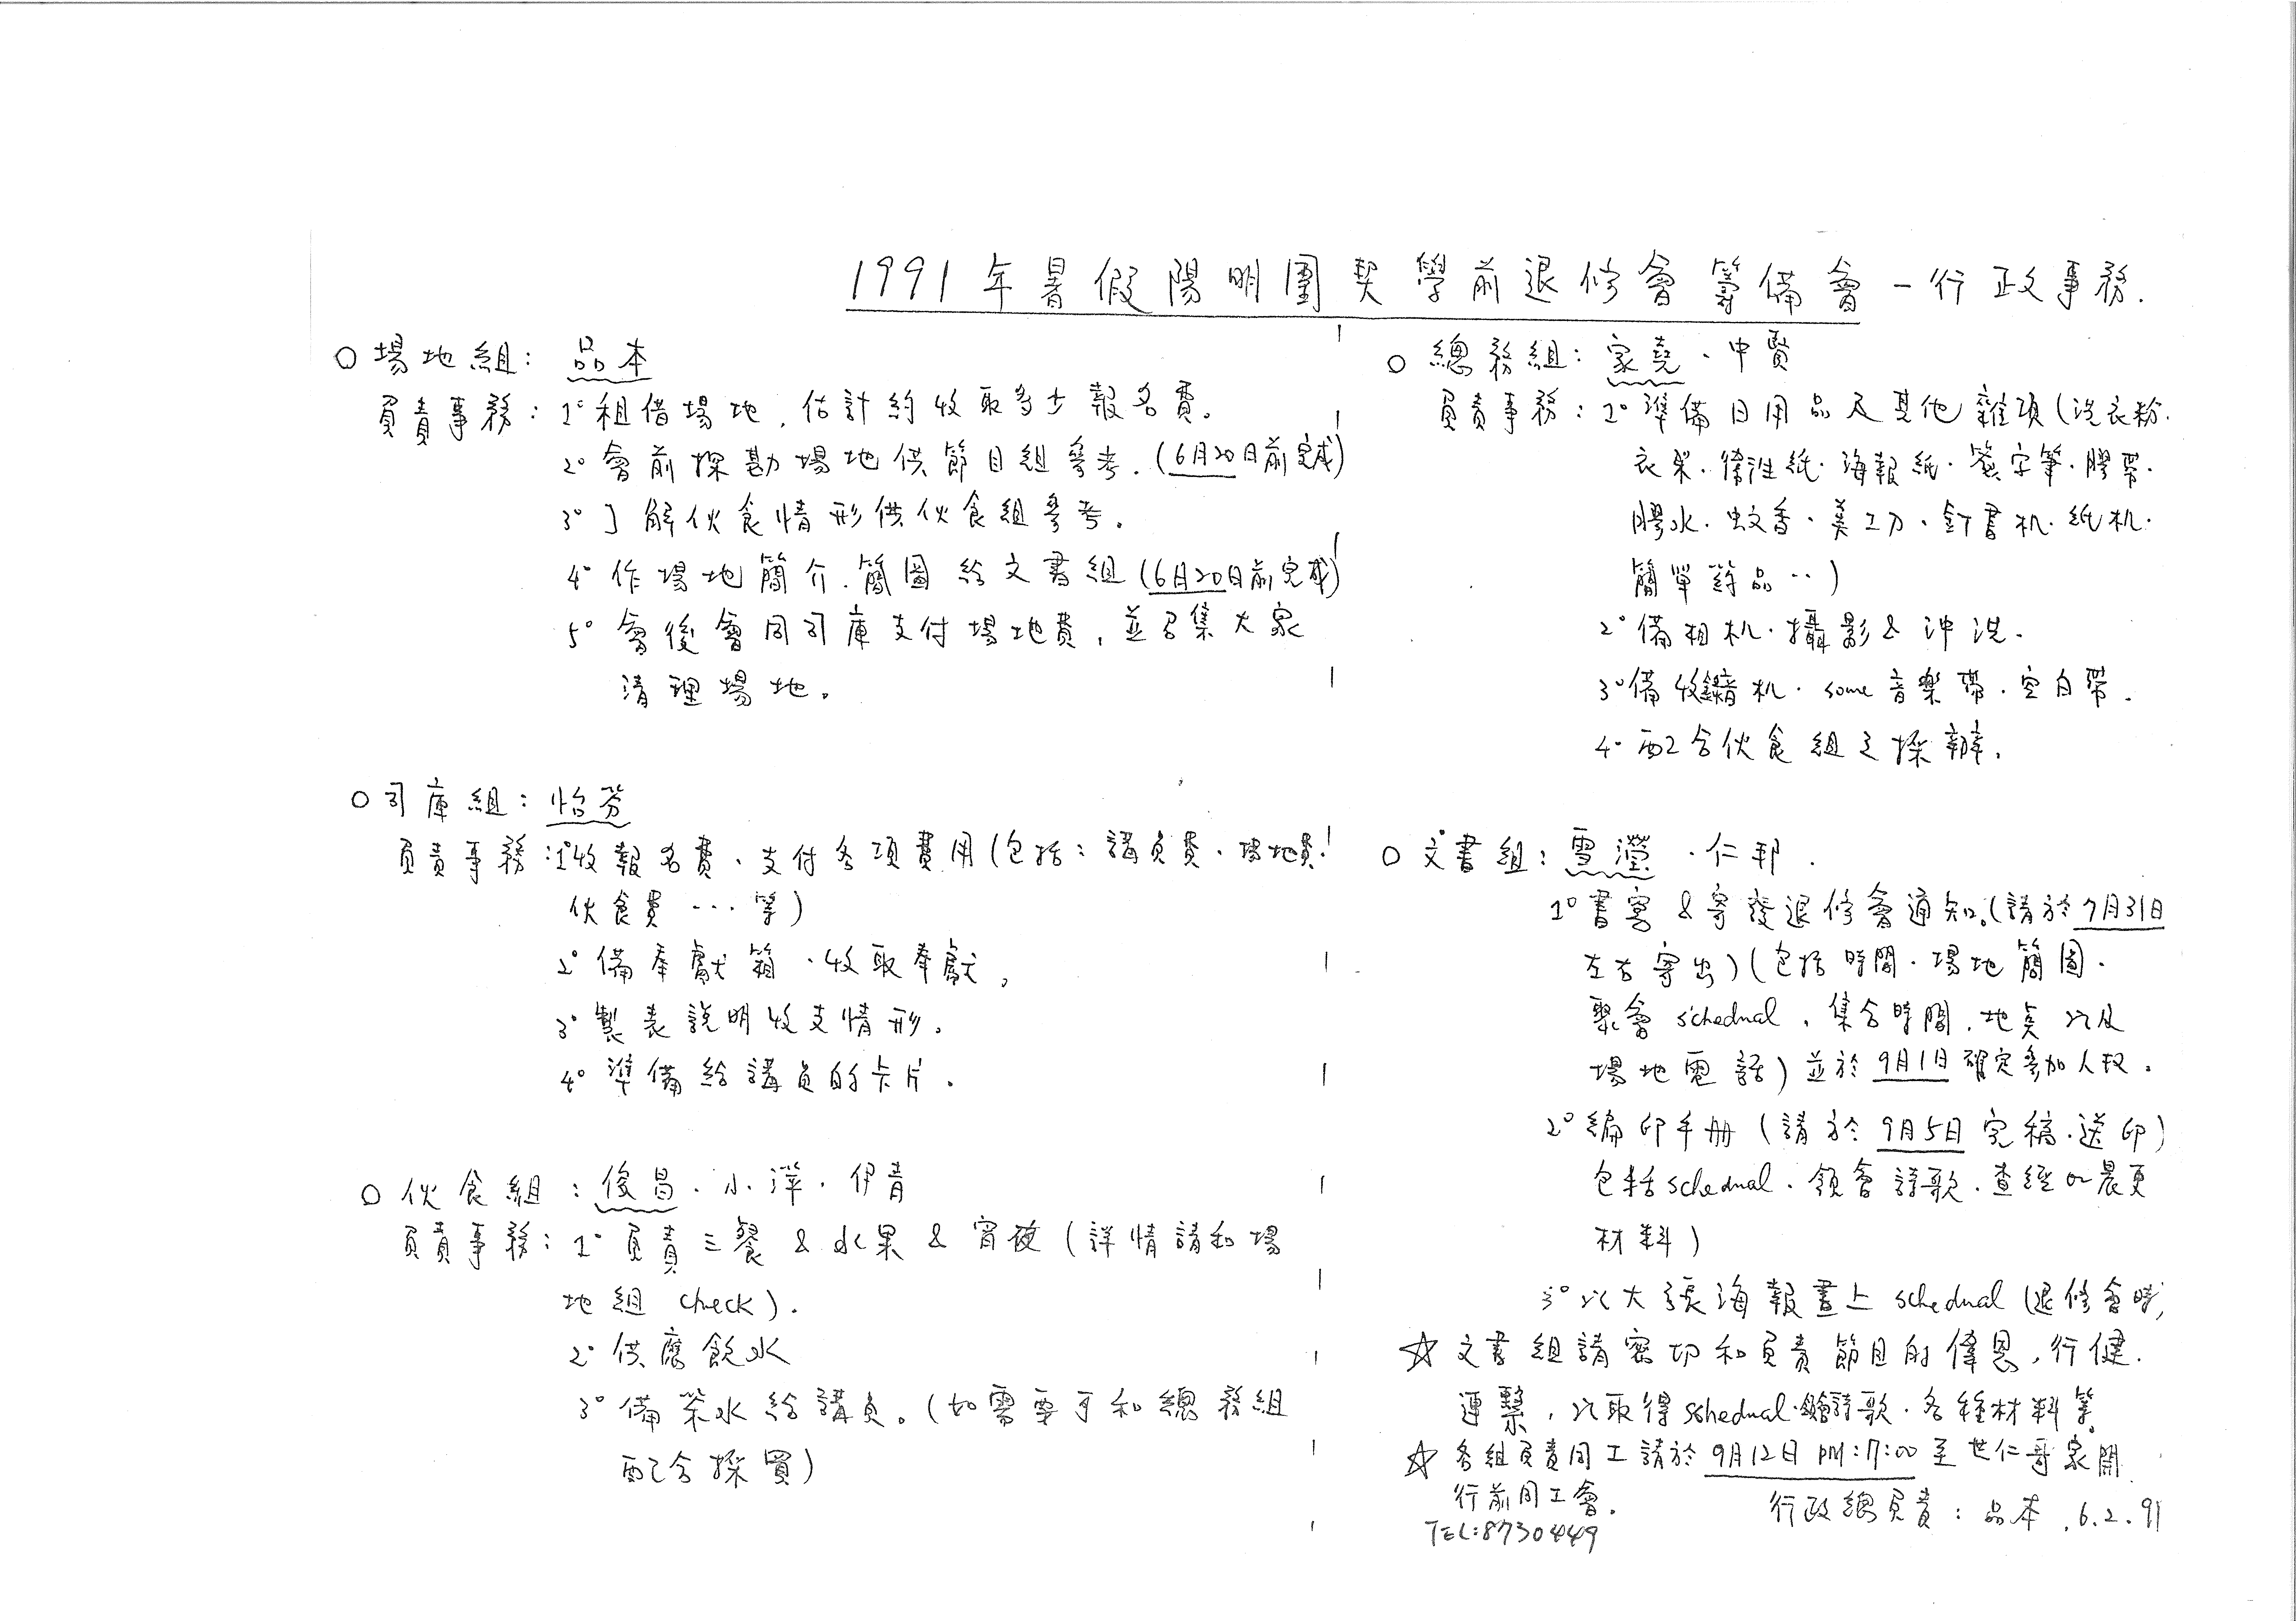 1991年暑假陽明團契學前退修會籌備會－行政事務.
○場地組：品本
負責事務：1°租借場地，估計約收取多少報名費。
2°會前探勘場地供節目組參考.(6月20日前完成)
3°了解伙食情形供伙食組參考。
4°作場地簡介.簡圖給文書組(6月20日前完成)
5°會後會同司庫支付場地費，並召集大家
清理場地。
○司庫組：怡芬
負責事務：1°收報名費、支付各項費用(包括：講員費、場地費、
伙食費…等)
2°備奉獻箱、收取奉獻，
3°製表說明收支情形。
4°準備給講員的卡片。
○伙食組：俊昌.小萍.伊青
負責事務：1°負責三餐&水果&宵夜(詳情請和場
地組check).
2°供應飲水
3°備茶水給講員。(如需要可和總務組
配合採買)
○總務組：家堯、中賢
負責事務：1°準備日用品及其他雜項(洗衣粉.
衣架.衛生紙.海報紙.簽字筆.膠帶.
膠水.蚊香.美工刀.釘書机.紙机.
簡單葯品‥)
2°備相机.攝影&沖洗.
3°備收錄音机.some音樂帶.空白帶.
4°配合伙食組之採辦.
○文書組：雪瀅.仁邦.
1°書寫&寄發退修會通知。(請於7月31日
左右寄出)(包括時間.場地簡圖.
聚會schedual、集合時間.地點以及
場地電話)並於9月1日確定參加人數.
2°編印手冊(請於9月5日完稿.送印)
包括schedual.領會詩歌.查經or晨更
材料)
3°以大張海報畫上schedual(退修會時)
☆文書組請密切和負責節目的偉恩，行健.
連繫，以取得schedual.領會詩歌.各種材料等。
☆各組負責同工請於9月12日PM:7:00至世仁哥家開
行前同工會.
TEL:8730449
行政總負責：品本.6.2.91